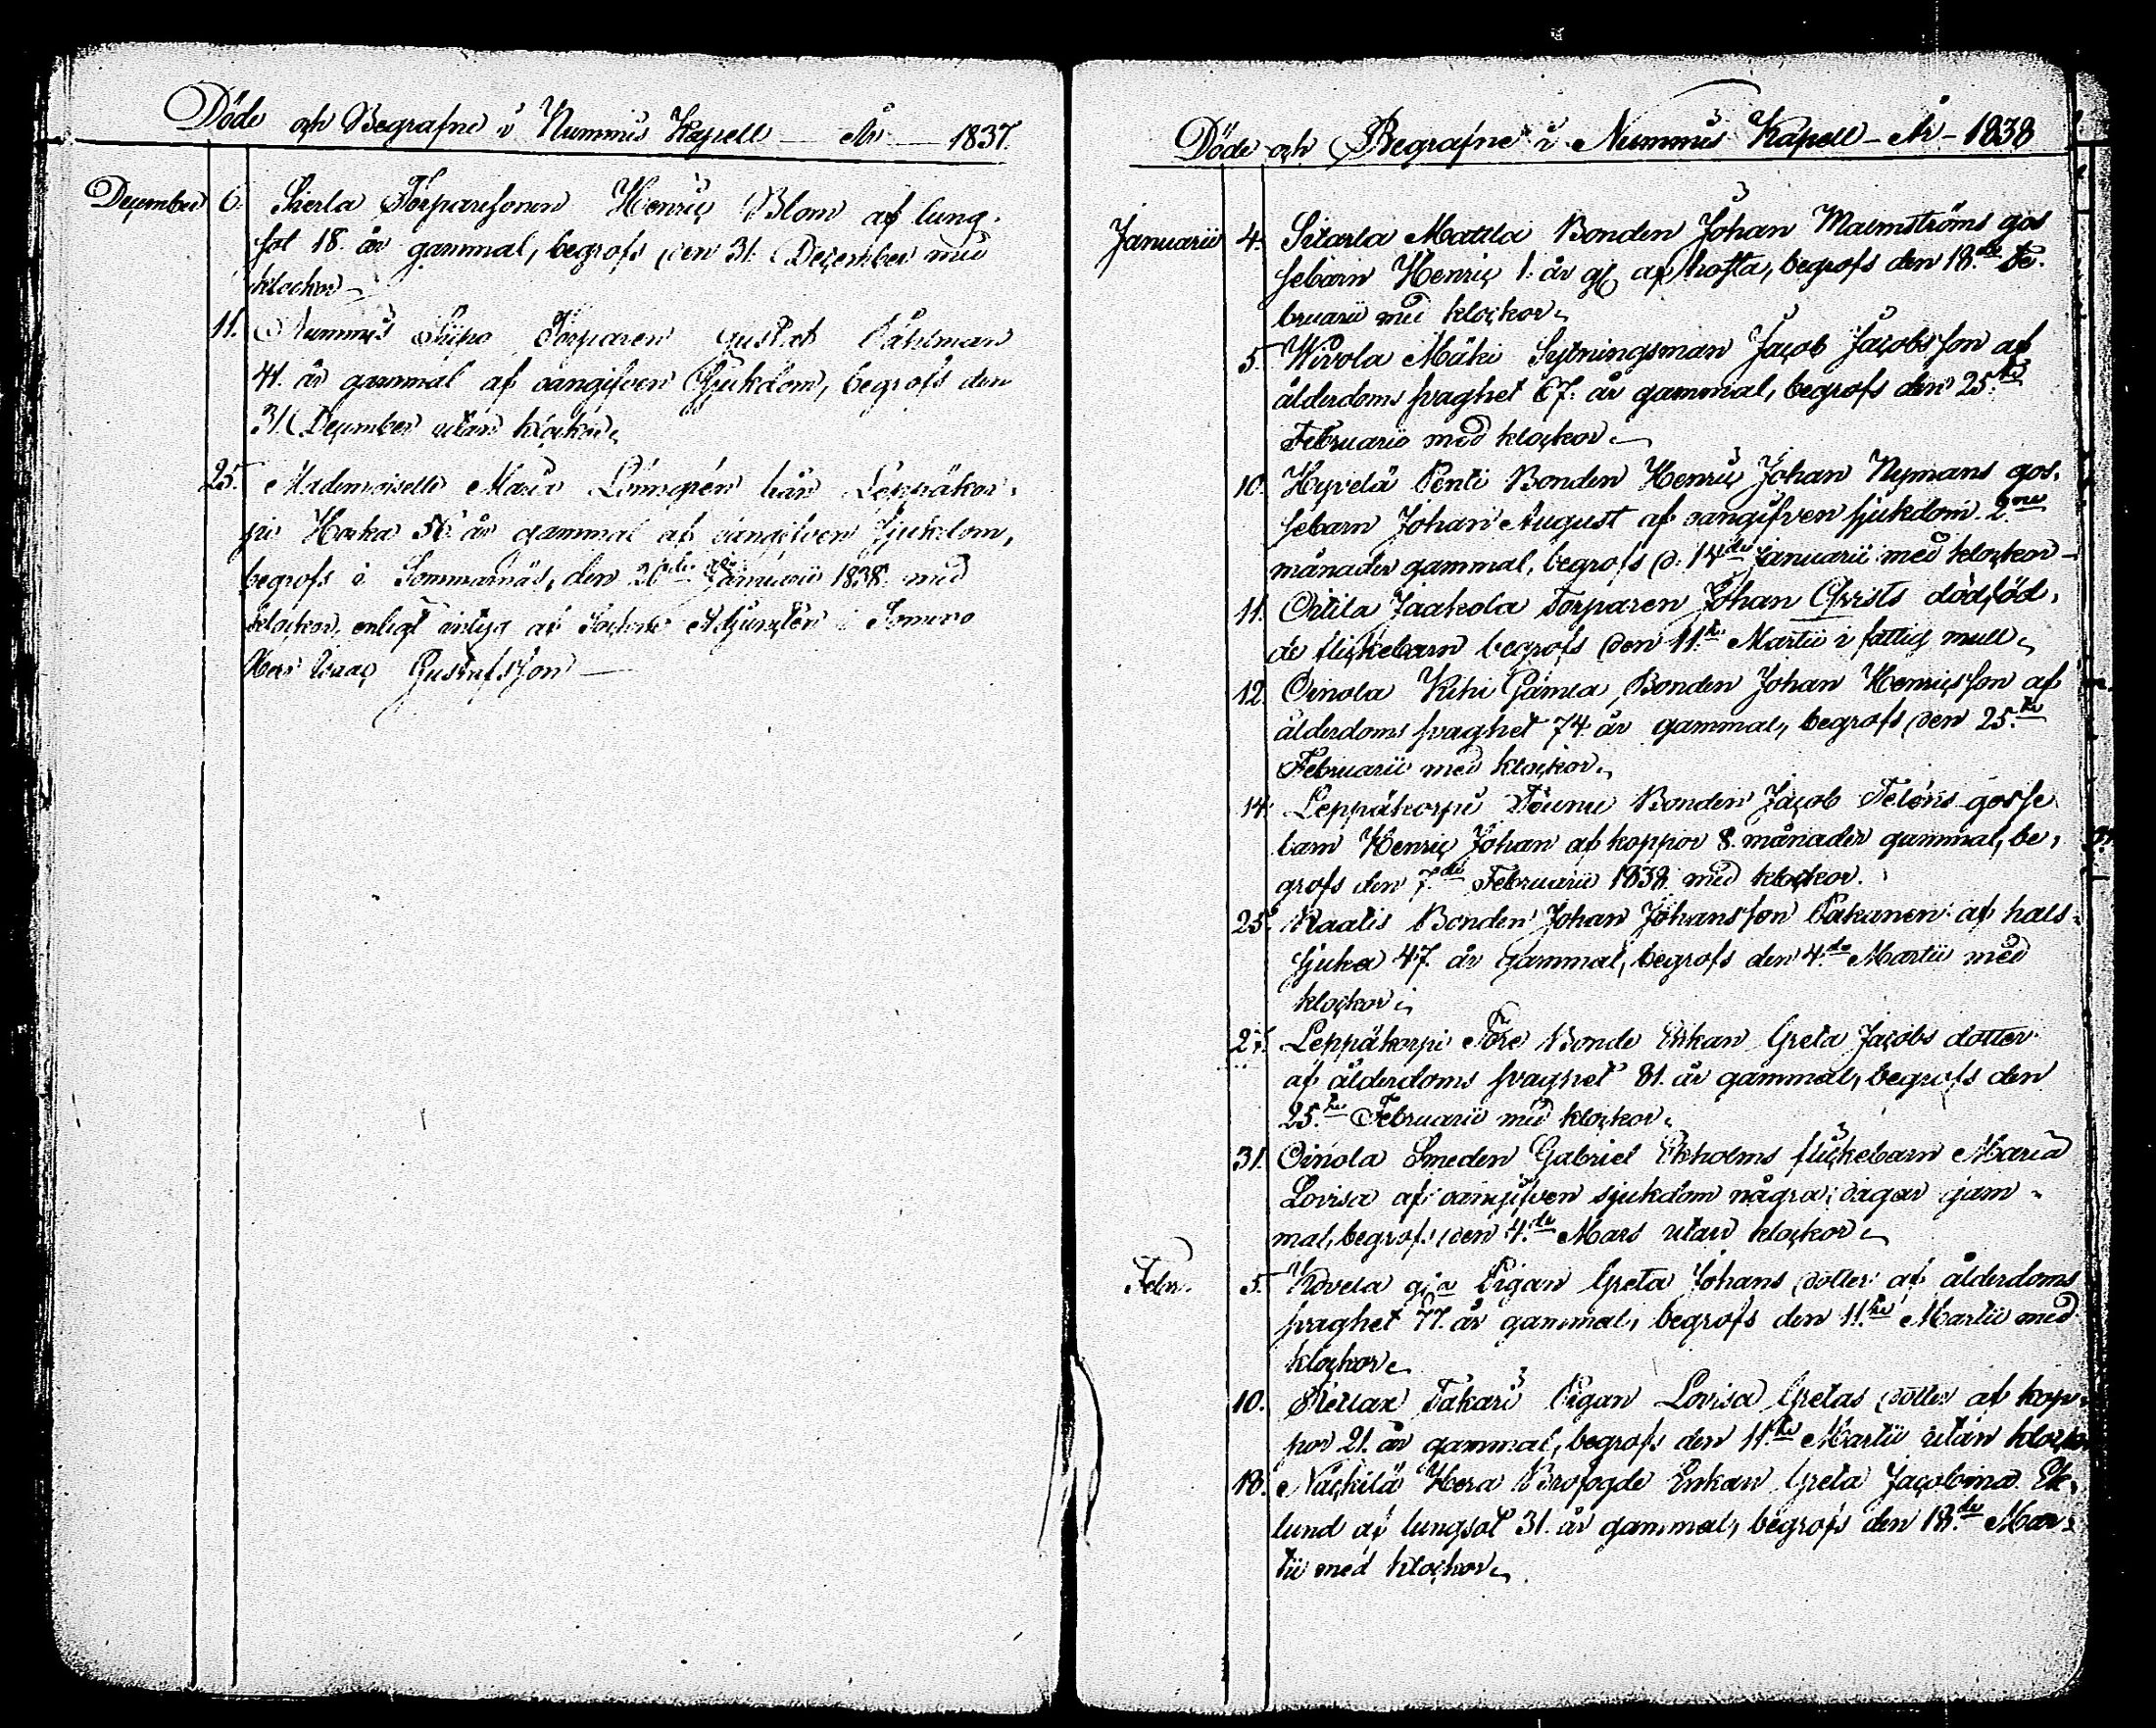 Döde och Begrafne i Nummis Kapell — År — 1837.
December 6. Sierla Torparesonen Henric Blom af lung-
sot 18. år gammal, begrofs den 31. December med
klockor
11. Nummis Torparen Gustaf
41. år gammal af oangifven sjukdom, begrofs den
31. December utan klockor
25. Mademoiselle Maria Lönngrén från Leppäkor-
pi 56 år gammal af oangifven sjukdom,
begrofs i Sommarnäs, den Januarii 1838. med
klockor, enligt intyg af Sockne Adjuncten i Somero
Herr Isaac Gustafsson —
Döde och Begrafne i Nummis Kapell - År - 1838
Januarii 4. Sitarla Mattla Bonden Johan Malmströms gos
sebarn Henric 1. år gl af hosta, begrofs den 18.de Fe-
bruarii med klockor
5. Wivola Mäki Sytningsman Jacob Jacobsson af
ålderdoms svaghet 67. år gammal, begrofs den 25.te
Februarii med klockor
10. Hyvelä Penti Bonden Henric Johan Nymans gos-
sebarn Johan August af oangifven sjukdom 2.ne
månader gammal, begrofs d. Januarii med klockor
11. Ottila Jaakola Torparen Johan Qvists dödföd-
de flickebarn begrofs den 11.te Martii i fattig mull
12. Oinola Kihi Gamla Bonden Johan Henricsson af
ålderdoms svaghet 74. år gammal, begrofs den 25.te
Februarii med klockor
14. Leppäkorpi Bonden Jacob Feléns gosse
barn Henric Johan af koppor 8. månader gammal, be-
grofs den 7.de Februarii 1838. med klockor.
25. Raatis Bonden Johan Johansson Pakanen af hals-
sjuka 47. år gammal, begrofs den 4.de Martii med
klockor
27. Leppäkorpi Före Bonde Enkan Greta Jacobs dotter
af ålderdoms svaghet 81. år gammal, begrofs den
25.te Februarii med klockor
31. Oinola Smeden Gabriel Ekholms flickebarn Maria
Lovisa af oangifven sjukdom några dagar gam-
mal, begrofs den 4.de Mars utan klockor
Febr. 5. Kovela Pigan Greta Johans dotter af ålderdoms
svaghet 77. år gammal, begrofs den 11.te Martii med
klockor
10. Retlax Takari Pigan Lovisa Gretas dotter af kop-
por 21. år gammal, begrofs den 11.te Martii utan klockor
18. Näckilä Brofogde Enkan Greta Jacobina Ek-
lund af lungsot 31. år gammal, begrofs den 18.de Mar-
tii med klockor